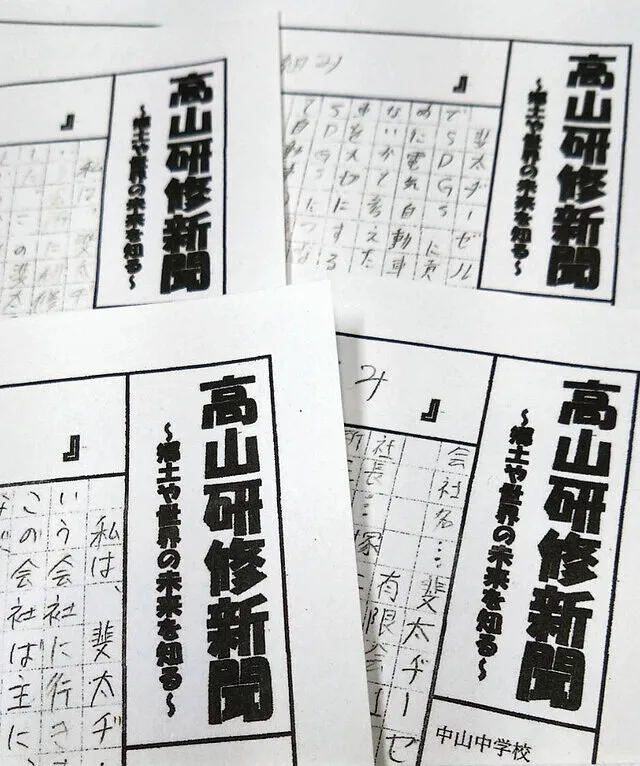 高山研修新聞
～郷土や世界の未来を知る～
』
私は、斐太デ
高山研修新聞
～郷土や世界の未来を知る～
み
』
斐太ヂーゼル
でSDGsに貢
めに電気自動車
ないかと考えた
車を大切にする
SDGs
高山研修新聞
～郷土や世界の未来を知る～
』
私は、斐太ヂ
いう会社に行き
この会社は主に、
高山研修新聞
～郷土や世界の未来を知る～
中山中学校
み
』
会社名…斐太ヂーゼ
有限会
社長…